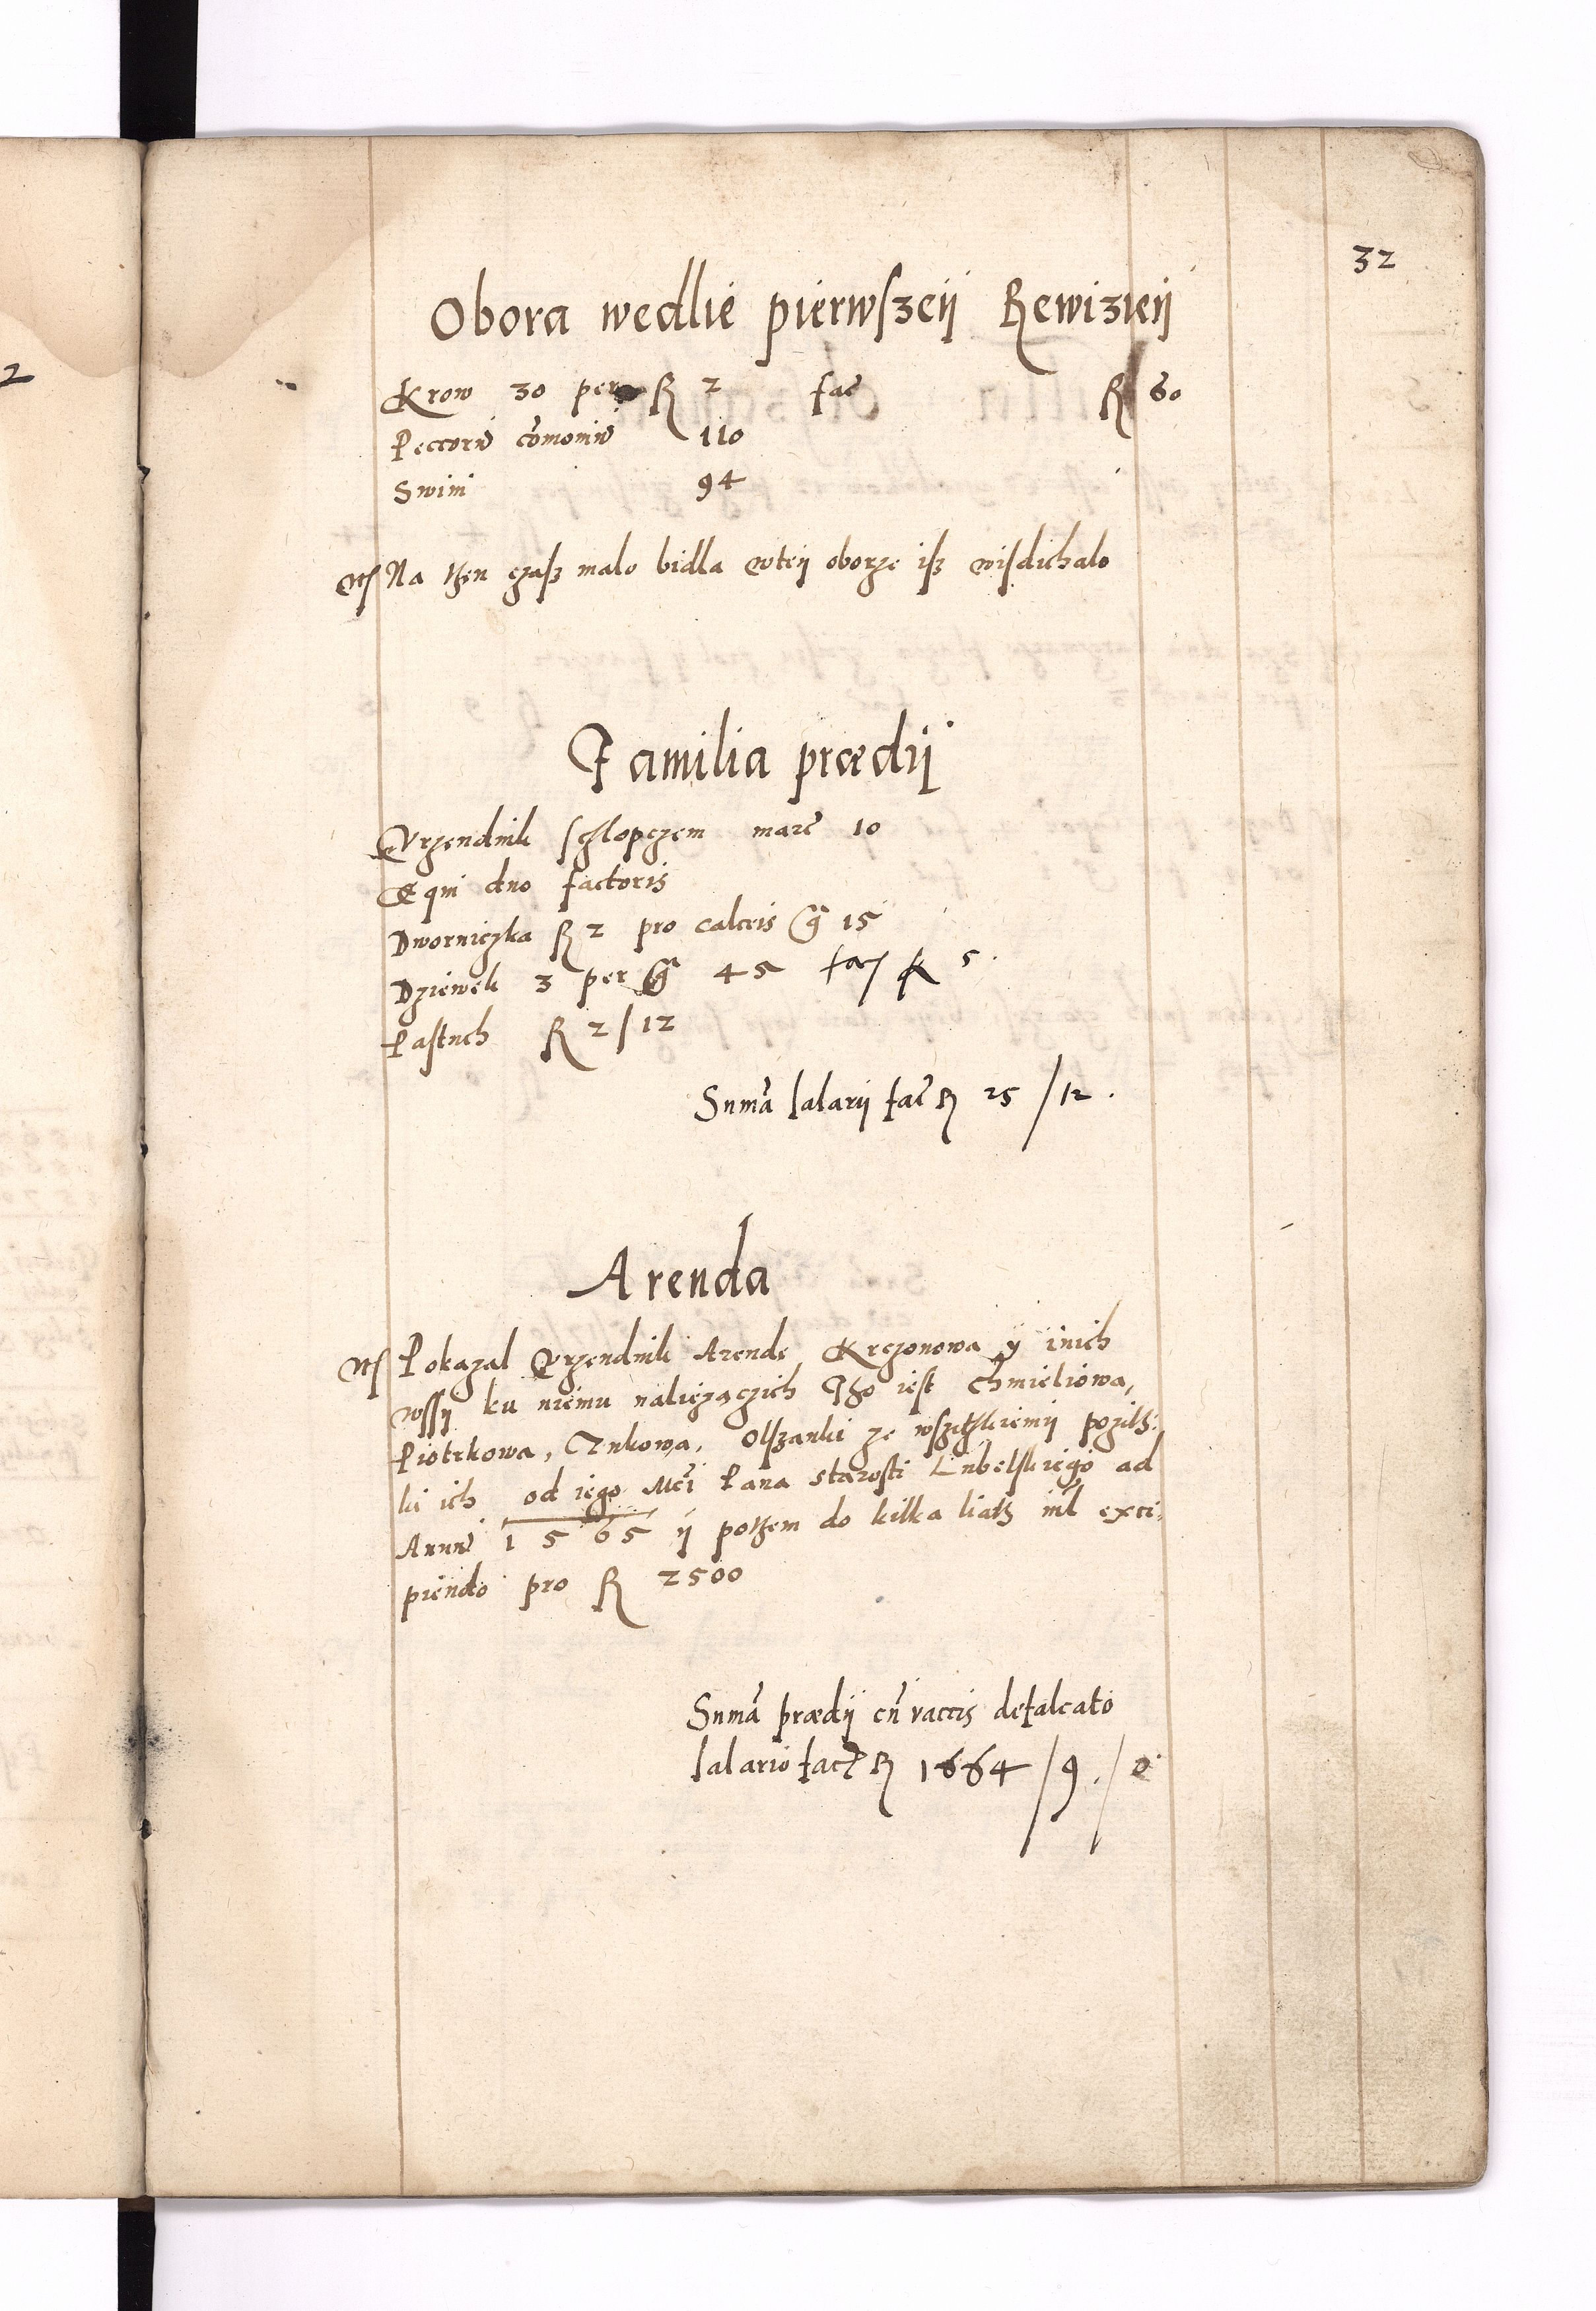 32
Obora wedlie pierwszeij Rewizieij
Krow 30 per R 2 fac̃ R 60
Peccorũ cõmoniũ 110
Swini 94
Na then czasz malo bidla wteij oborze isz wisdichalo
Familia prædij
Vrzendnik schlopczem marc̃ 10
Equi duo factoris
Dworniczka R 2 pro calceis g̃ 15
Dziewek 3 per g̃ 45 fac R 5.
Pastuch R 2/12
Sum̃a salarij fac̃ R 25/12.
Arenda
Pokazal Vrzendnik Arende Krczonowa ÿ inich
wssij ku niemu naliezaczich Tho iest Chmieliowa,
Piotrkowa, Zukowa, Olszanki ze wszitkiemij pozith:
ki ich od iego Mci Pana starosti Lubelskiego ad
Annũ 1565 ij pothem do kilka liath inl̃ exci:
piendo pro R 2500
Sum̃a prædij cũ vaccis defalcato
salario fac R 1664/9./0
2